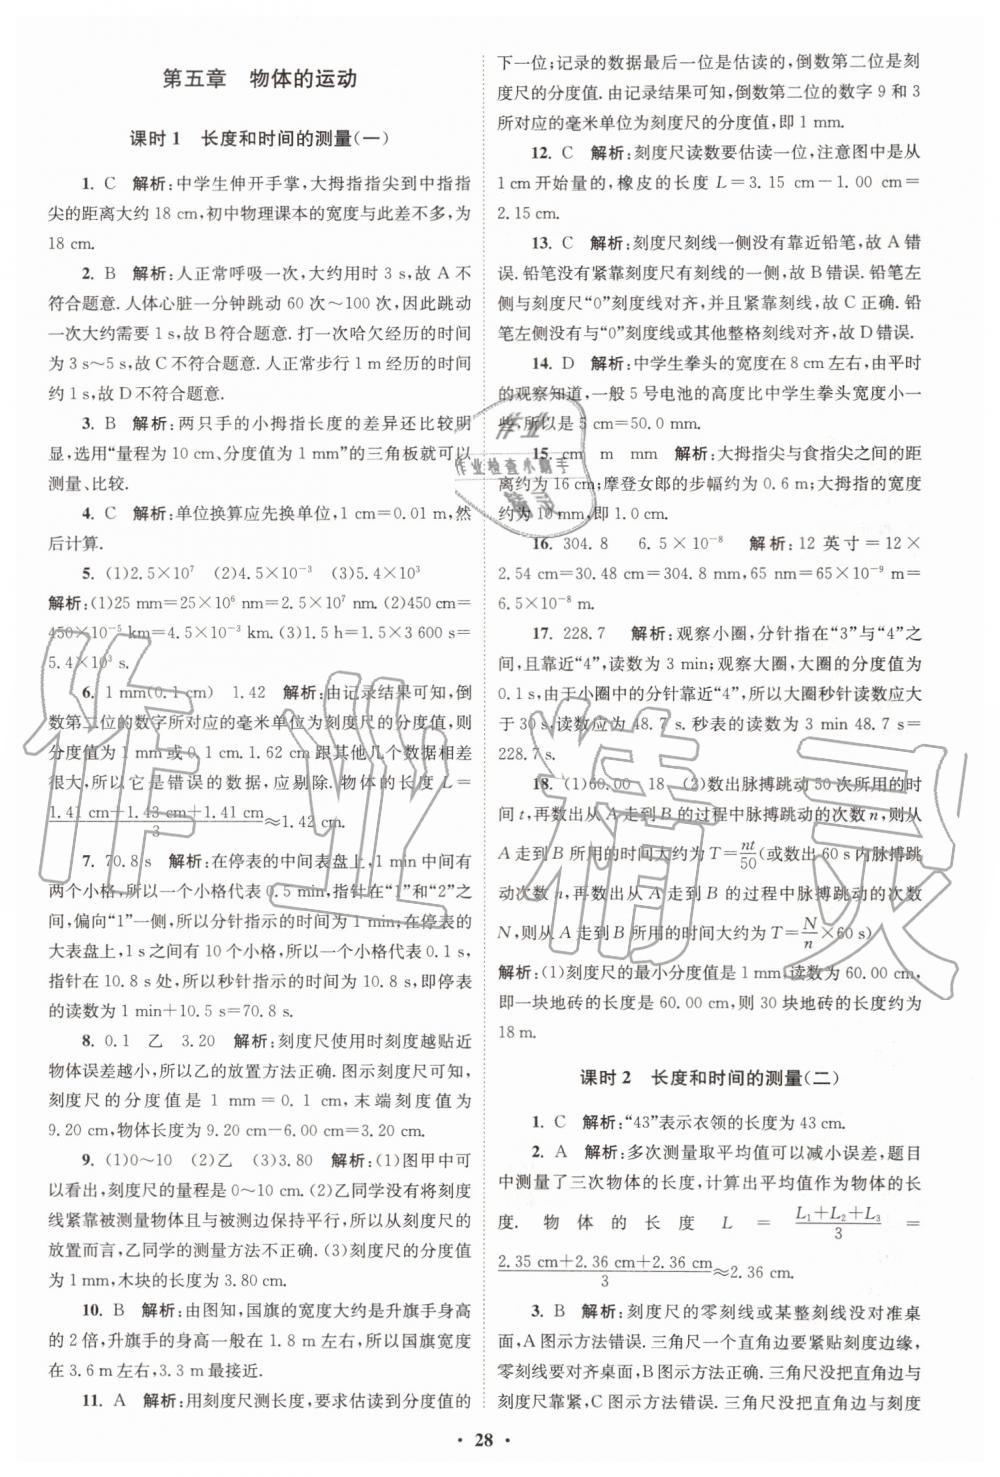 第五章 物体的运动
课时1 长度和时间的测量(一)
1. C 解析:中学生伸开手掌,大拇指指尖到中指指
尖的距离大约 18 cm,初中物理课本的宽度与此差不多,为
18 cm.
2. B 解析:人正常呼吸一次,大约用时 3 s,故 A 不
符合题意. 人体心脏一分钟跳动 60 次～100 次,因此跳动
一次大约需要 1 s,故 B 符合题意. 打一次哈欠经历的时间
为 3 s～5 s,故 C 不符合题意. 人正常步行 1 m 经历的时间
大约为 1 s,故 D 不符合题意.
3. B 解析:两只手的小拇指长度的差异还比较明
显,选用“量程为 10 cm、分度值为 1 mm”的三角板就可以
测量、比较.
4. C 解析:单位换算应先换单位,1 cm=0.01 m,然
后计算.
5. (1)2.5×10⁷ (2)4.5×10⁻³ (3)5.4×10³
解析:(1)25 mm=25×10⁶ nm=2.5×10⁷ nm. (2)450 cm=
450×10⁻⁵ km=4.5×10⁻³ km. (3)1.5 h=1.5×3 600 s=
5.4×10³ s.
6. 1 mm(0.1 cm) 1.42 解析:由记录结果可知,倒
数第二位的数字所对应的毫米单位为刻度尺的分度值,则
分度值为 1 mm 或 0.1 cm. 1.62 cm 跟其他几个数据相差
很大,所以它是错误的数据,应剔除. 物体的长度 L=
(1.41 cm+1.43 cm+1.41 cm)/3≈1.42 cm.
7. 70.8 s 解析:在停表的中间表盘上,1 min 中间有
两个小格,所以一个小格代表 0.5 min,指针在“1”和“2”之
间,偏向“1”一侧,所以分针指示的时间为 1 min;在停表的
大表盘上,1 s 之间有 10 个小格,所以一个小格代表 0.1 s,
指针在 10.8 s 处,所以秒针指示的时间为 10.8 s,即停表
的读数为 1 min+10.5 s=70.8 s.
8. 0.1 乙 3.20 解析:刻度尺使用时刻度越贴近
物体误差越小,所以乙的放置方法正确. 图示刻度尺的最小
刻度尺的分度值是 1 mm=0.1 cm,末端刻度值为
9.20 cm,物体长度为 9.20 cm-6.00 cm=3.20 cm.
9. (1)0～10 (2)乙 (3)3.80 解析:(1)图甲中可
以看出,刻度尺的量程是 0～10 cm. (2)乙同学没有将刻度
线紧靠被测量物体且与被测边保持平行,所以从刻度尺的
放置而言,乙同学的测量方法不正确. (3)刻度尺的分度值
为 1 mm,木块的长度为 3.80 cm.
10. B 解析:由图知,国旗的宽度大约是升旗手身高
的 2 倍,升旗手的身高一般在 1.8 m 左右,所以国旗宽度
在 3.6 m 左右,3.3 m 最接近.
11. A 解析:用刻度尺测长度,要求估读到分度值的
下一位;记录的数据最后一位是估读的,倒数第二位是刻
度尺的分度值. 由记录结果可知,倒数第二位的数字 9 和 3
所对应的毫米单位为刻度尺的分度值,即 1 mm.
12. C 解析:刻度尺读数要估读一位,注意图中是从
1 cm 开始量的,橡皮的长度 L=3.15 cm-1.00 cm=
2.15 cm.
13. C 解析:刻度尺刻线一侧没有靠近铅笔,故 A 错
误. 铅笔没有紧靠刻度尺有刻线的一侧,故 B 错误. 铅笔左
侧与刻度尺“0”刻度线对齐,并且紧靠刻线,故 C 正确. 铅
笔左侧没有与“0”刻度线或其他整格刻线对齐,故 D 错误.
14. D 解析:中学生拳头的宽度在 8 cm 左右,由平时
的观察知道,一般 5 号电池的高度比中学生拳头宽度小一
些,所以是 5 cm=50.0 mm.
15. cm m mm 解析:大拇指尖与食指尖之间的距
离约为 16 cm;摩登女郎的步幅约为 0.6 m;大拇指的宽度
约为 10 mm,即 1.0 cm.
16. 304.8 6.5×10⁻⁸ 解析:12 英寸=12×
2.54 cm=30.48 cm=304.8 mm,65 nm=65×10⁻⁹ m=
6.5×10⁻⁸ m.
17. 228.7 解析:观察小圈,分针指在“3”与“4”之
间,且靠近“4”,读数为 3 min;观察大圈,大圈的分度值为
0.1 s,由于小圈中的分针靠近“4”,所以大圈秒针读数应大
于 30 s,读数应为 48.7 s. 秒表的读数为 3 min 48.7 s=
228.7 s.
18. (1)60.00 18 (2)数出脉搏跳动 50 次所用的时
间 t,再数出从 A 走到 B 的过程中脉搏跳动的次数 n,则从
A 走到 B 所用的时间大约为 T=nt/50(或数出 60 s 内脉搏跳
动次数 n,再数出从 A 走到 B 的过程中脉搏跳动的次数
N,则从 A 走到 B 所用的时间大约为 T=N/n×60 s)
解析:(1)刻度尺的最小分度值是 1 mm,读数为 60.00 cm,
即一块地砖的长度是 60.00 cm,则 30 块地砖的长度约为
18 m.
课时2 长度和时间的测量(二)
1. C 解析:“43”表示衣领的长度为 43 cm.
2. A 解析:多次测量取平均值可以减小误差,题目
中测量了三次物体的长度,计算出平均值作为物体的长
度. 物体的长度 L=(L₁+L₂+L₃)/3=
(2.35 cm+2.36 cm+2.36 cm)/3≈2.36 cm.
3. B 解析:刻度尺的零刻线或某整刻线没对准桌
面,A 图示方法错误. 三角尺一个直角边要紧贴刻度边缘,
零刻线要对齐桌面,B 图示方法正确. 三角尺没把直角边与
刻度尺靠紧,C 图示方法错误. 三角尺没把直角边与刻度
• 28 •
作业
作业检查小助手
精灵
作业精灵